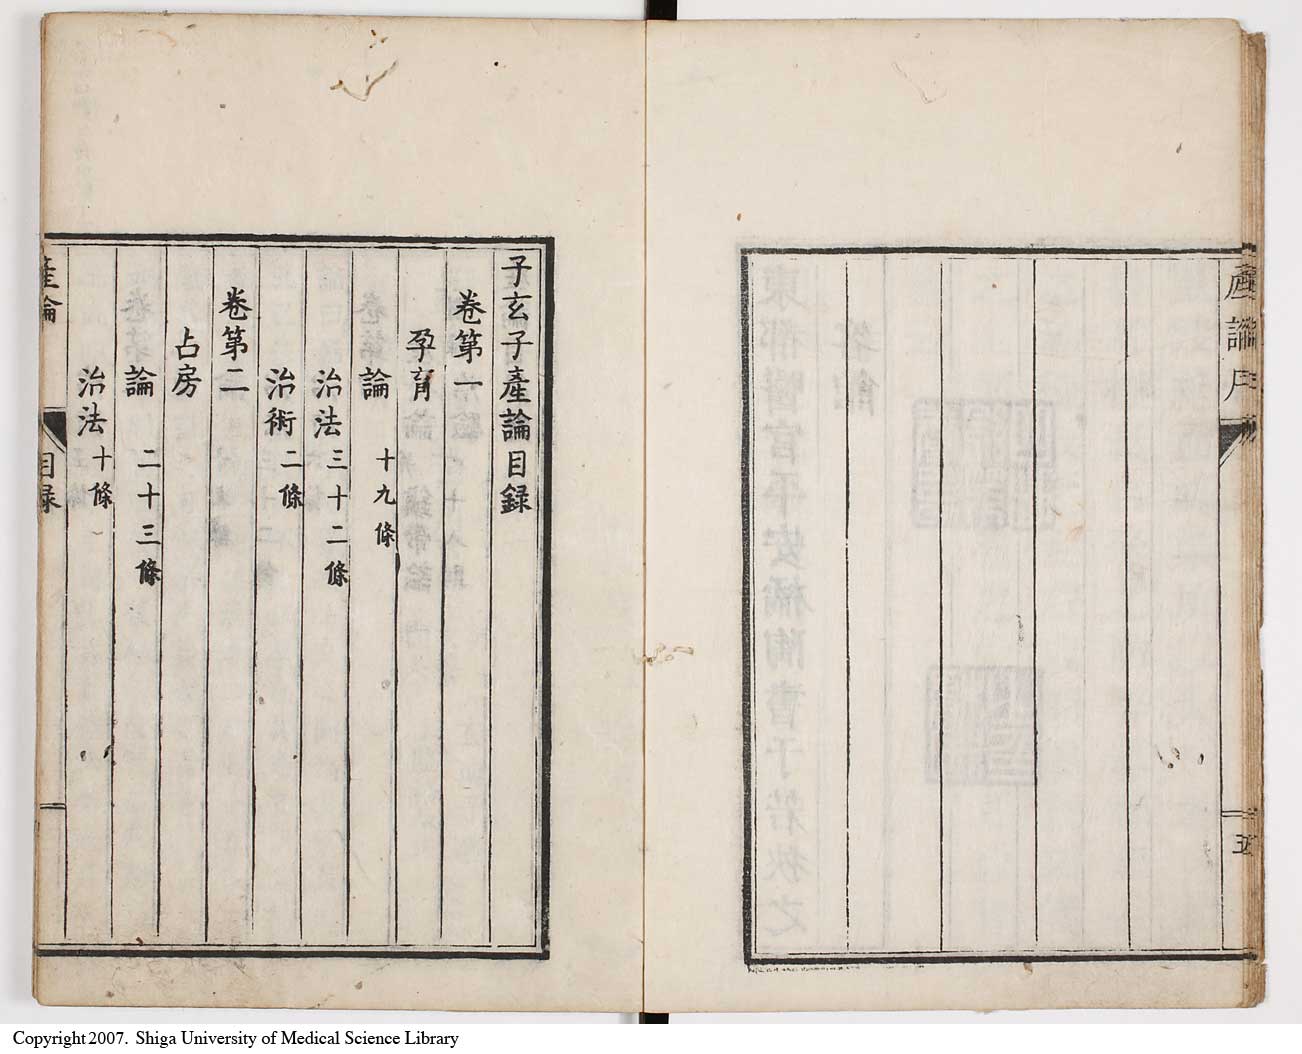 產論序
五
子玄子產論目録
卷第一
孕育
論 十九條
治法 三十二條
治術 二條
卷第二
占房
論 二十三條
治法 十條
產論
目録
Copyright 2007. Shiga University of Medical Science Library